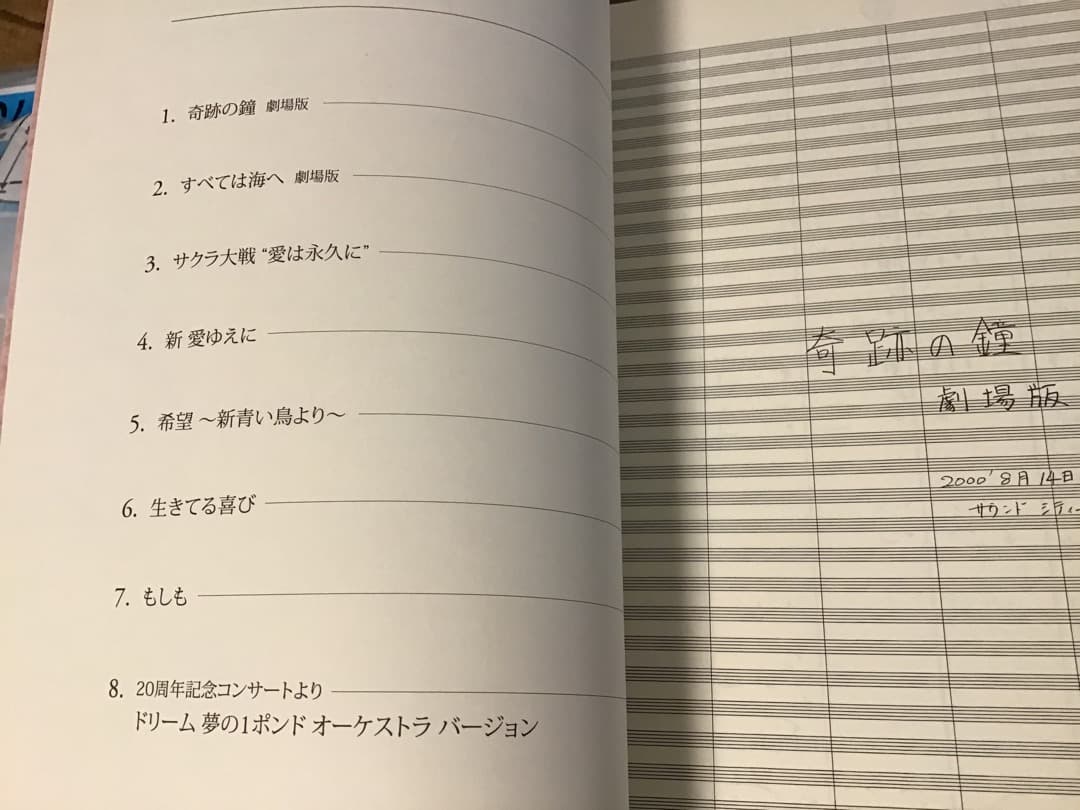 1. 奇跡の鐘 劇場版
2. すべては海へ 劇場版
3. サクラ大戦 “愛は永久に”
4. 新 愛ゆえに
5. 希望 〜新青い鳥より〜
6. 生きてる喜び
7. もしも
8. 20周年記念コンサートより
ドリーム 夢の1ポンド オーケストラ バージョン
奇跡の鐘
劇場版
2000'8月14日
サウンド シティー